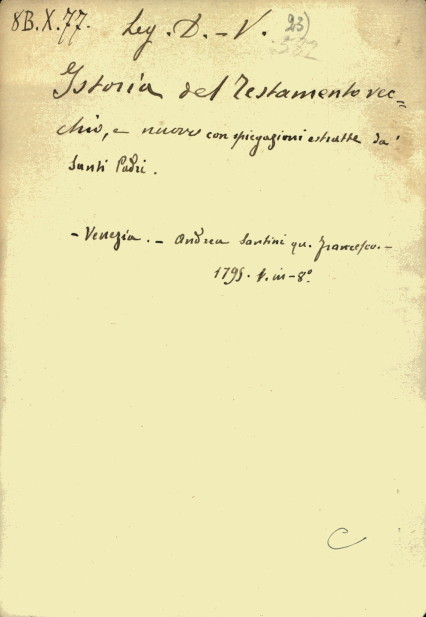 8B.X.77. Leg. D. - V. 23)
582
Istoria del Testamento vec=
chio, e nuovo con spiegazioni estratte da'
Santi Padri.
- Venezia. - Andrea Santini qu. Francesco. -
1795. v. in-8°.
C